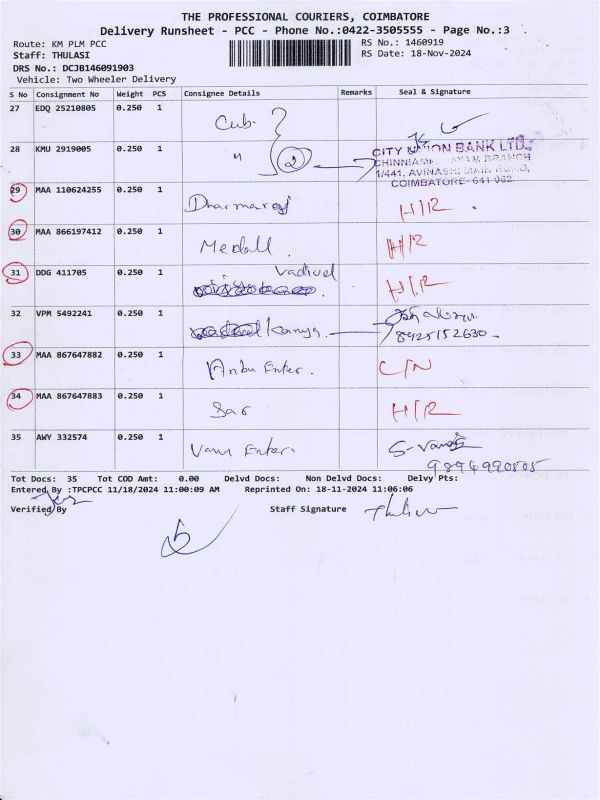 THE PROFESSIONAL COURIERS, COIMBATORE
Delivery Runsheet - PCC - Phone No.:0422-3505555 - Page No.:3
Route: KM PLM PCC RS No.: 1460919
Staff: THULASI RS Date: 18-Nov-2024
DRS No.: DCJB146091903
Vehicle: Two Wheeler Delivery
S No Consignment No Weight PCS Consignee Details Remarks Seal & Signature
27 EDQ 25210805 0.250 1 Cub.
28 KMU 2919005 0.250 1 " 2
CITY UNION BANK LTD.
BRANCH
1/441, AVINASHI MAIN ROAD,
COIMBATORE-641 062.
29 MAA 110624255 0.250 1 H/R
30 MAA 866197412 0.250 1 Medall H/R
31 DDG 411705 0.250 1 Vadivel H/R
32 VPM 5492241 0.250 1 Kanya
8925152630
33 MAA 867647882 0.250 1 Anbu Enter. C/N
34 MAA 867647883 0.250 1 Sar H/R
35 AWY 332574 0.250 1 Vanu Enter.
9894990505
Tot Docs: 35 Tot COD Amt: 0.00 Delvd Docs: Non Delvd Docs: Delvy Pts:
Entered By :TPCPCC 11/18/2024 11:00:09 AM Reprinted On: 18-11-2024 11:06:06
Verified By Staff Signature